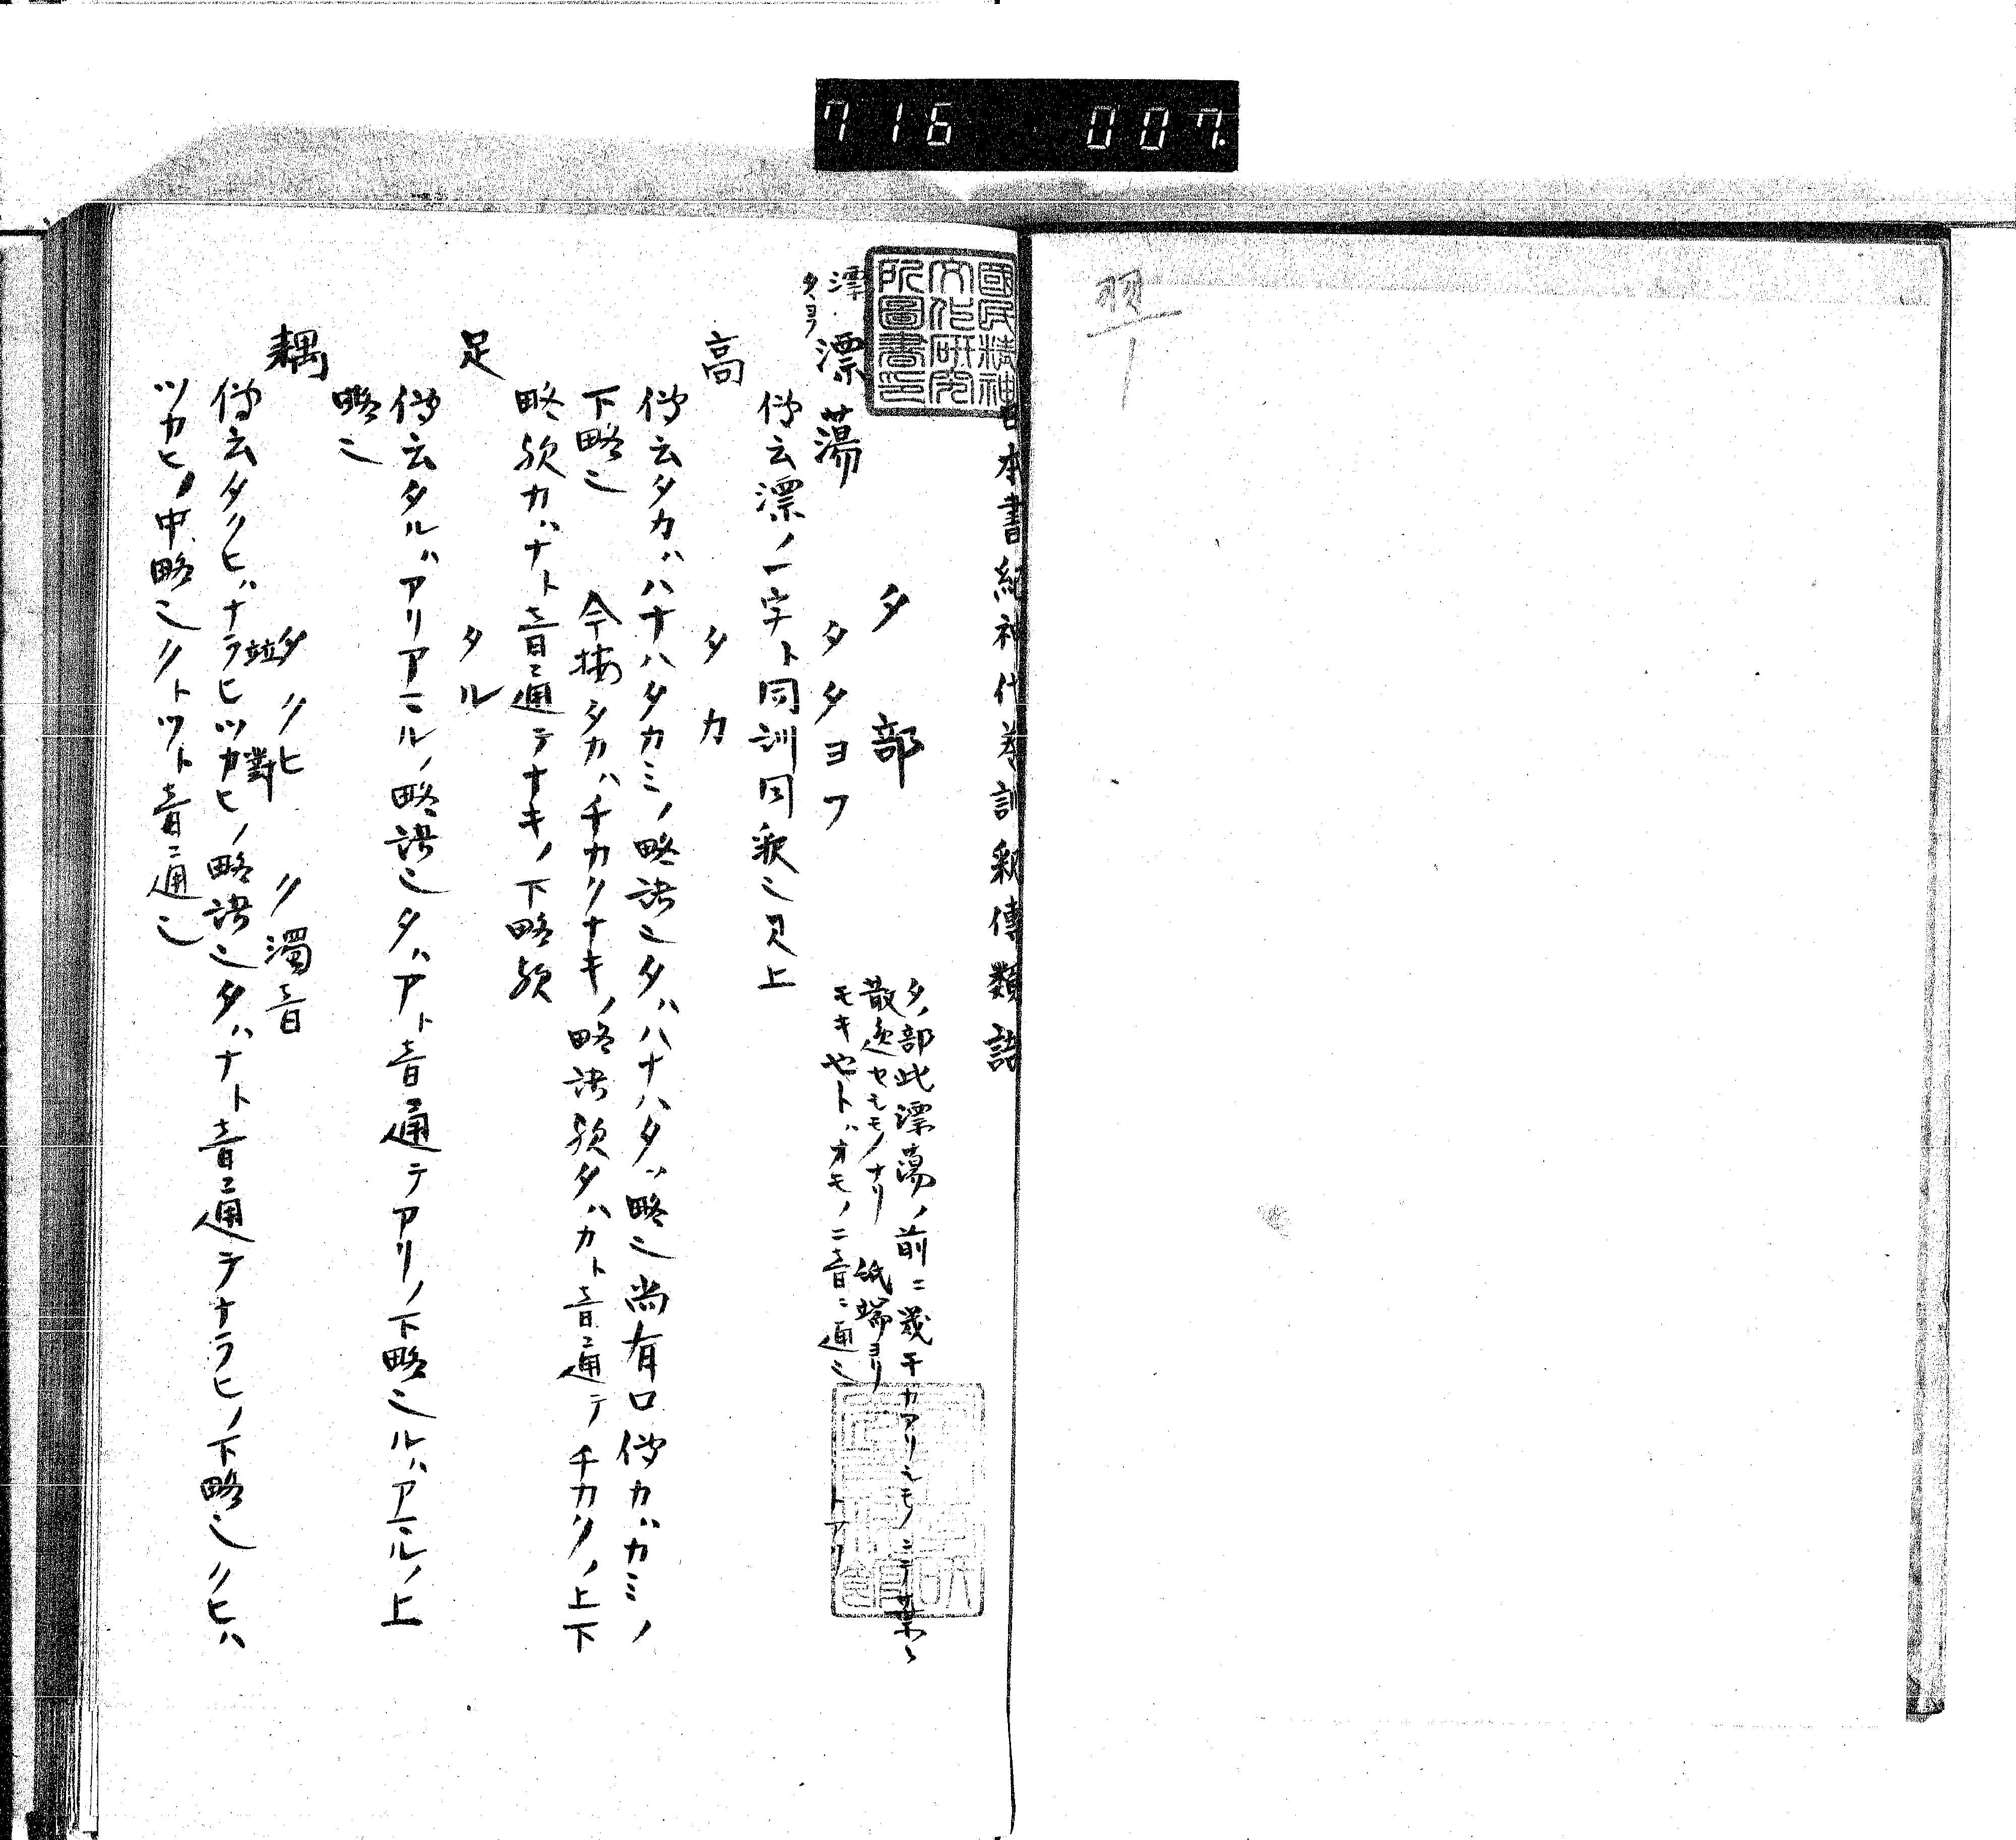 716 007.
日本書紀神代巻訓釈傳類語
タ部
タノ部此漂蕩ノ前ニ幾千カアリシモノ
散逸セシモノナリ 紙端ヨリ
漂蕩 タタヨフ
傳云漂ノ一字ト同訓同釈也見上
高 タカ
傳云タカハハナハタカミノ略語也タハハナハタノ略也尚有口傳カハカミノ
下略也 今按タカハチカクナキノ略語歟タハカト音通テチカクノ上下
略歟カハナト音通テナキノ下略歟
足 タル
傳云タルハアリアマルノ略語也タハアト音通テアリノ下略也ルハアマルノ上
略也
耦 タクヒ ク濁音
傳云タクヒハナラヒツカヒノ略語也タハナト音通テナラヒノ下略也クヒハ
並 對
ツカヒノ中略也クトツト音通也
國民精神文化研究所圖書印